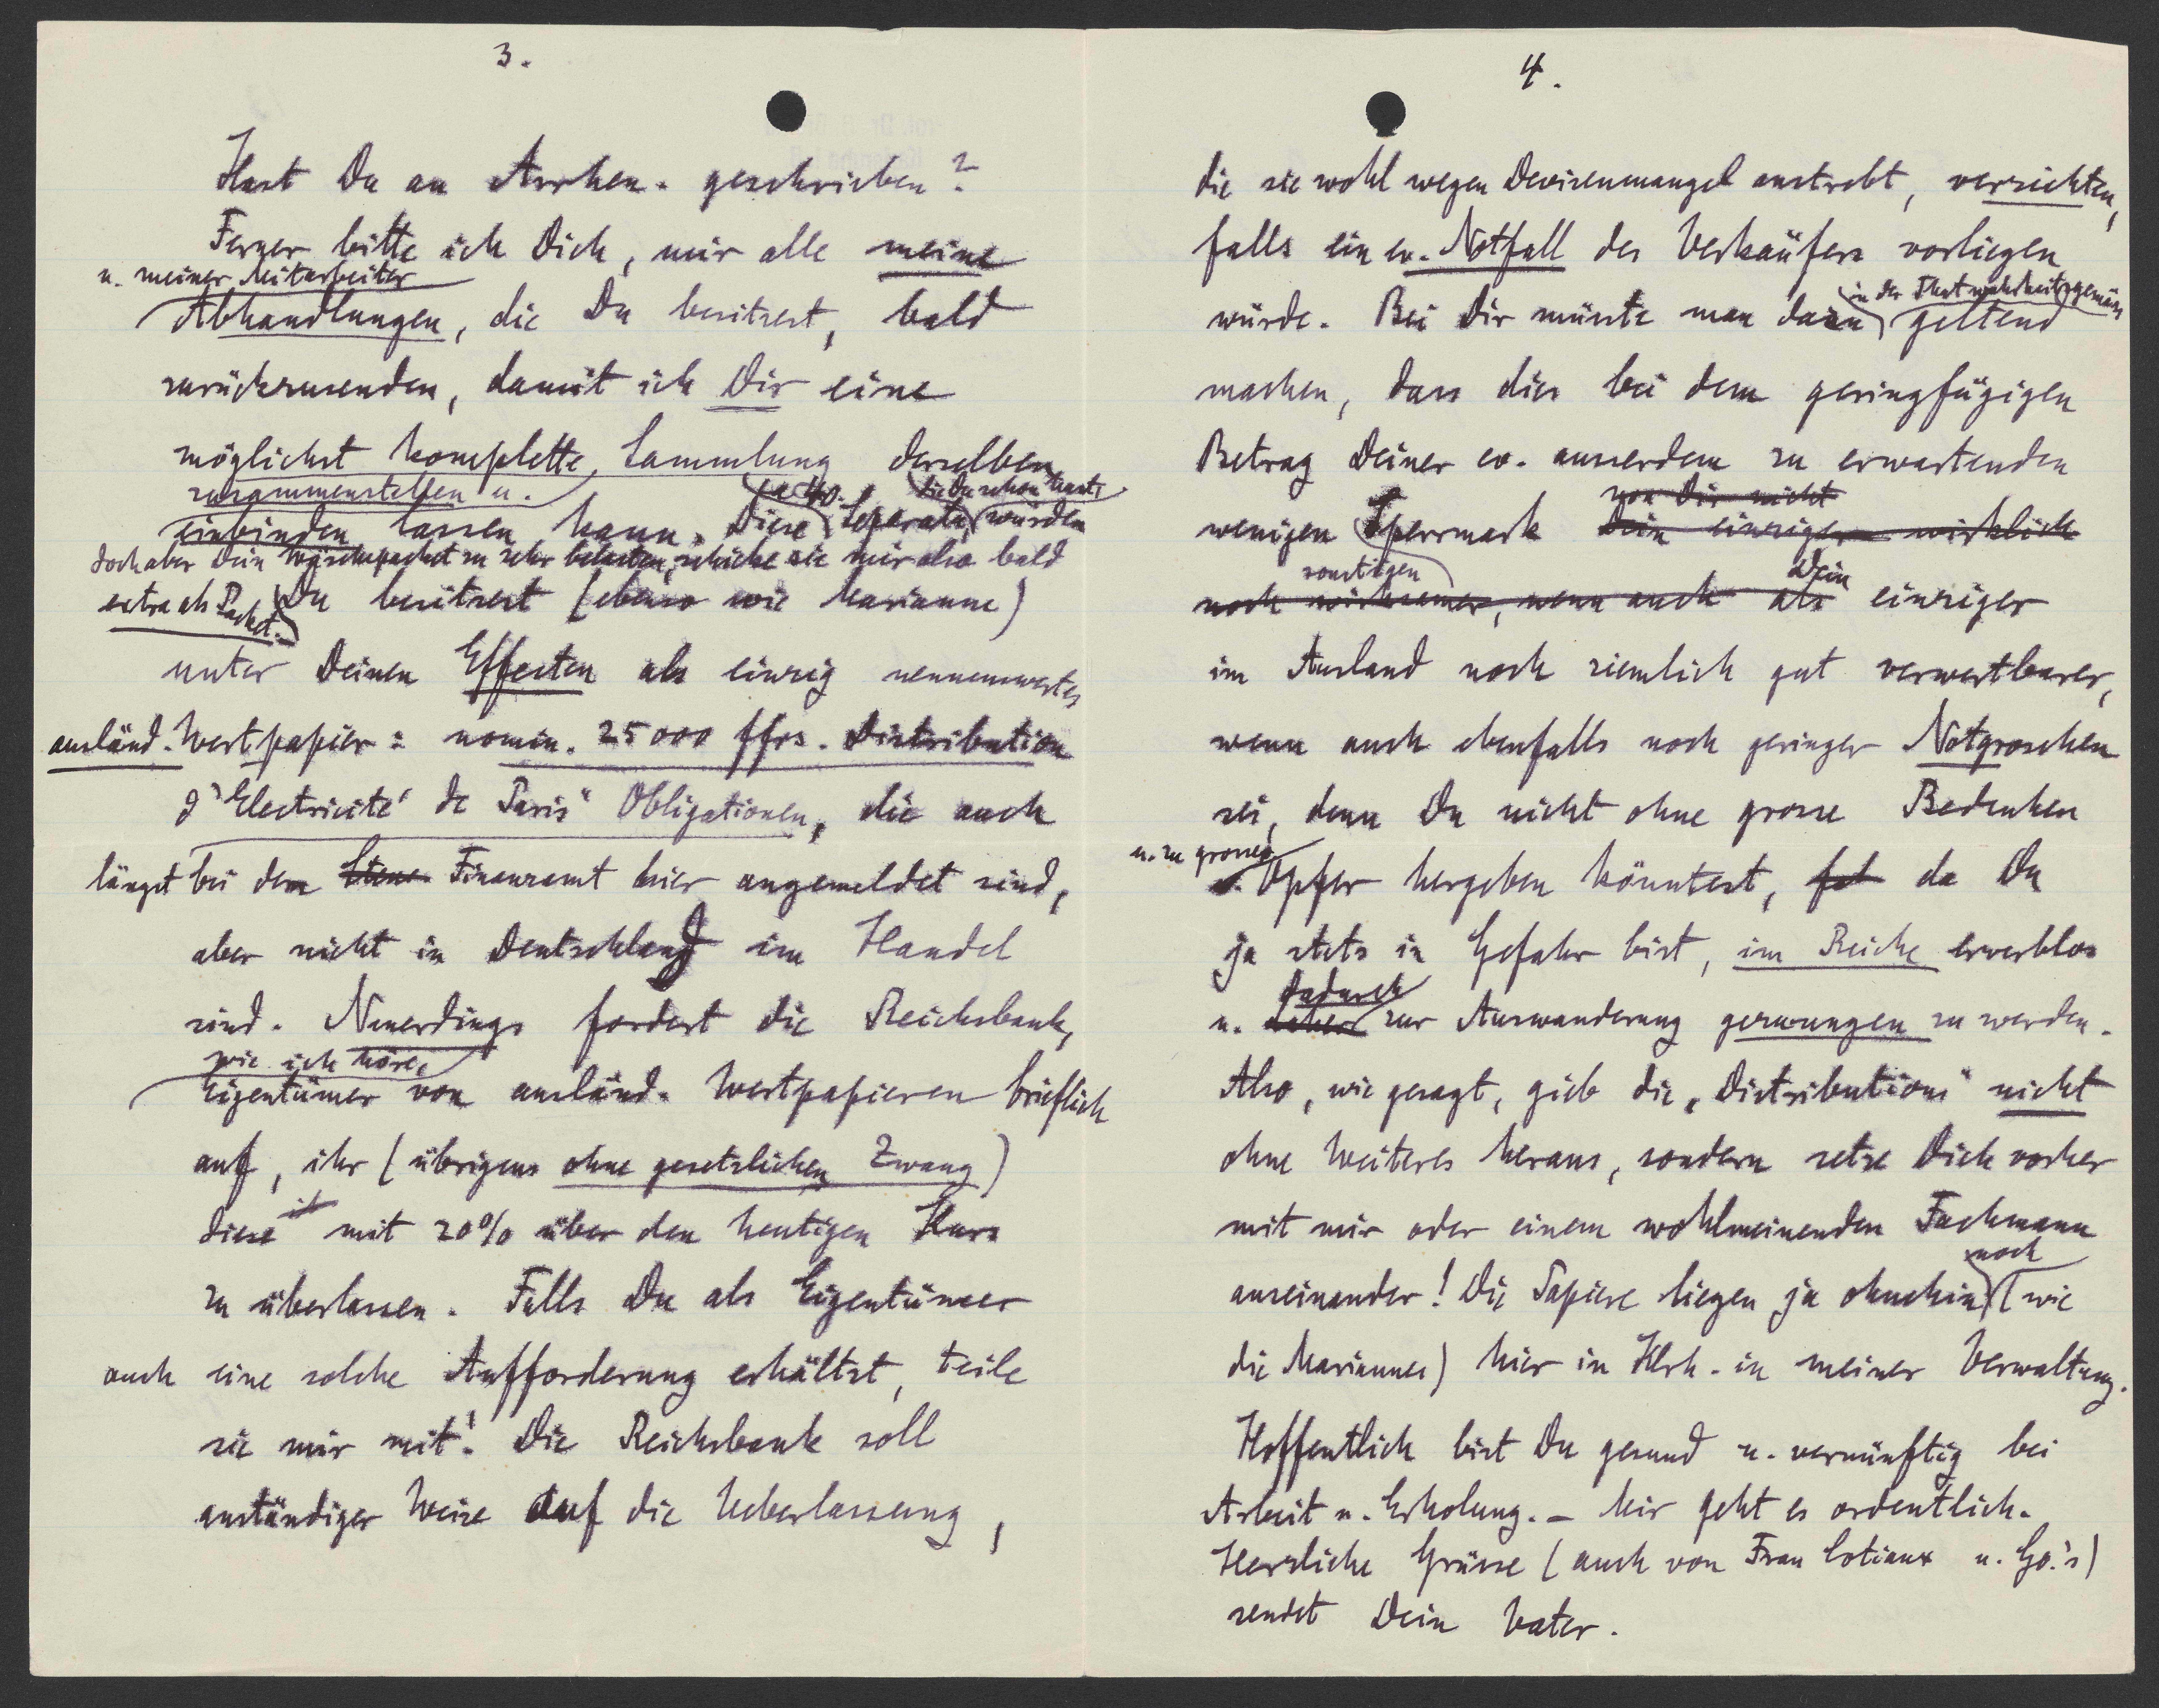 3.
Hast Du an Arrhen. geschrieben?
Ferner bitte ich Dich, mir alle meine
u. meiner Mitarbeiter
Abhandlungen, die Du besitzest, bald
zurückzusenden, damit ich Dir eine
möglichst komplette Sammlung derselben
zusammenstellen u.
einbinden lassen kann. Diese Separata würden
die Du schon hast,
doch aber Dein Wäschepacket zu sehr belasten, schicke sie mir also bald
extra als Packet.
Du besitzest (ebenso wie Marianne)
unter Deinen Effecten als einzig nennenswertes
ausländ. Wertpapier: nomin. 25000 ffrs. Distribution
d'Electricité de Paris" Obligationen, die auch
längst bei dem Finanzamt hier angemeldet sind,
aber nicht in Deutschland im Handel
sind. Neuerdings fordert die Reichsbank,
wie ich höre,
Eigentümer von ausländ. Wertpapieren brieflich
auf, ihr (übrigens ohne gesetzlichen Zwang)
diese mit 20% über den heutigen Kurs
zu überlassen. Falls Du als Eigentümer
auch eine solche Aufforderung erhältst, teile
sie mir mit! Die Reichsbank soll
anständiger Weise auf die Ueberlassung,
4.
die sie wohl wegen Devisenmangel anstrebt, verzichten,
falls ein ev. Notfall des Verkäufers vorliegen
in der That wahrheitsgemäss
würde. Bei Dir müsste man dann geltend
machen, dass dies bei dem geringfügigen
Betrag Deiner ev. ausserdem zu erwartenden
von Dir nicht
wenigen Sperrmark Dein einziger wirklich
sonstigen Dein
noch wirksamer, wenn auch als einziger
im Ausland noch ziemlich gut verwertbarer,
wenn auch ebenfalls noch geringer Notgroschen
sei, denn Du nicht ohne grosse Bedenken
u. zu grosses
Opfer hergeben könntest, da Du
ja stets in Gefahr bist, im Reiche erwerblos
dadurch
u. daher zur Auswanderung gezwungen zu werden.
Also, wie gesagt, gieb die „Distributions" nicht
ohne Weiteres heraus, sondern setze Dich vorher
mit mir oder einem wohlmeinenden Fachmann
noch
auseinander! Die Papiere liegen ja ohnehin (wie
die Mariannes) hier in Klrh. in meiner Verwaltung.
Hoffentlich bist Du gesund u. vernünftig bei
Arbeit u. Erholung. – Mir geht es ordentlich.
Herzliche Grüsse (auch von Frau Cotiaux u. Go.'s)
sendet Dein Vater.